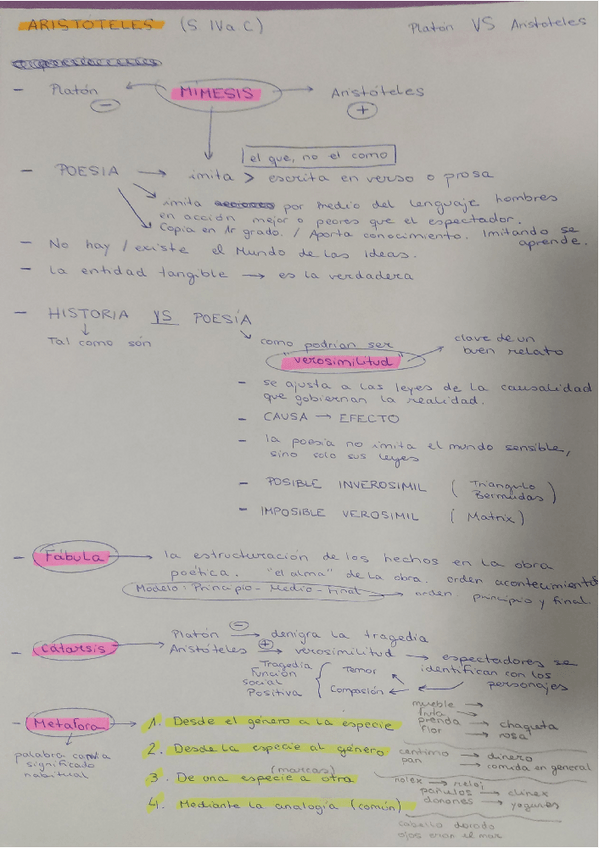 ARISTÓTELES (S. IV a. C) Platón VS Aristóteles
- Platón ← MÍMESIS → Aristóteles
- +
el que, no el como
- POESIA → imita > escrita en verso o prosa
imita por medio del lenguaje hombres
en acción mejor o peores que el espectador.
Copia en 1r grado. / Aporta conocimiento. Imitando se
aprende.
- No hay / existe el Mundo de las Ideas.
- La entidad tangible → es la verdadera
- HISTORIA VS POESÍA
Tal como son
como podrían ser
"verosimilitud" → clave de un
buen relato
- se ajusta a las leyes de la causalidad
que gobiernan la realidad.
- CAUSA → EFECTO
- la poesía no imita el mundo sensible,
sino solo sus leyes
- POSIBLE INVEROSIMIL (Triángulo
Bermudas)
- IMPOSIBLE VEROSIMIL (Matrix)
- Fábula → la estructuración de los hechos en la obra
poética. "el alma" de la obra. orden acontecimientos
Modelo: Principio - Medio - Final → orden principio y final
- catarsis → Platón - → denigra la tragedia
Aristóteles + → verosimilitud → espectadores se
identifican con los
personajes
Tragedia
función
social
Positiva
Temor
Compasión
- Metáfora → 1. Desde el género a la especie
mueble →
fruta →
prenda → chaqueta
flor → rosa
palabra cambia
significado
habitual
2. Desde la especie al género
centimo → dinero
pan → comida en general
3. De una especie a otra (marcas)
rolex → reloj
pañulos → clinex
danones → yogures
4. Mediante la analogía (común)
cabello dorado
ojos como el mar